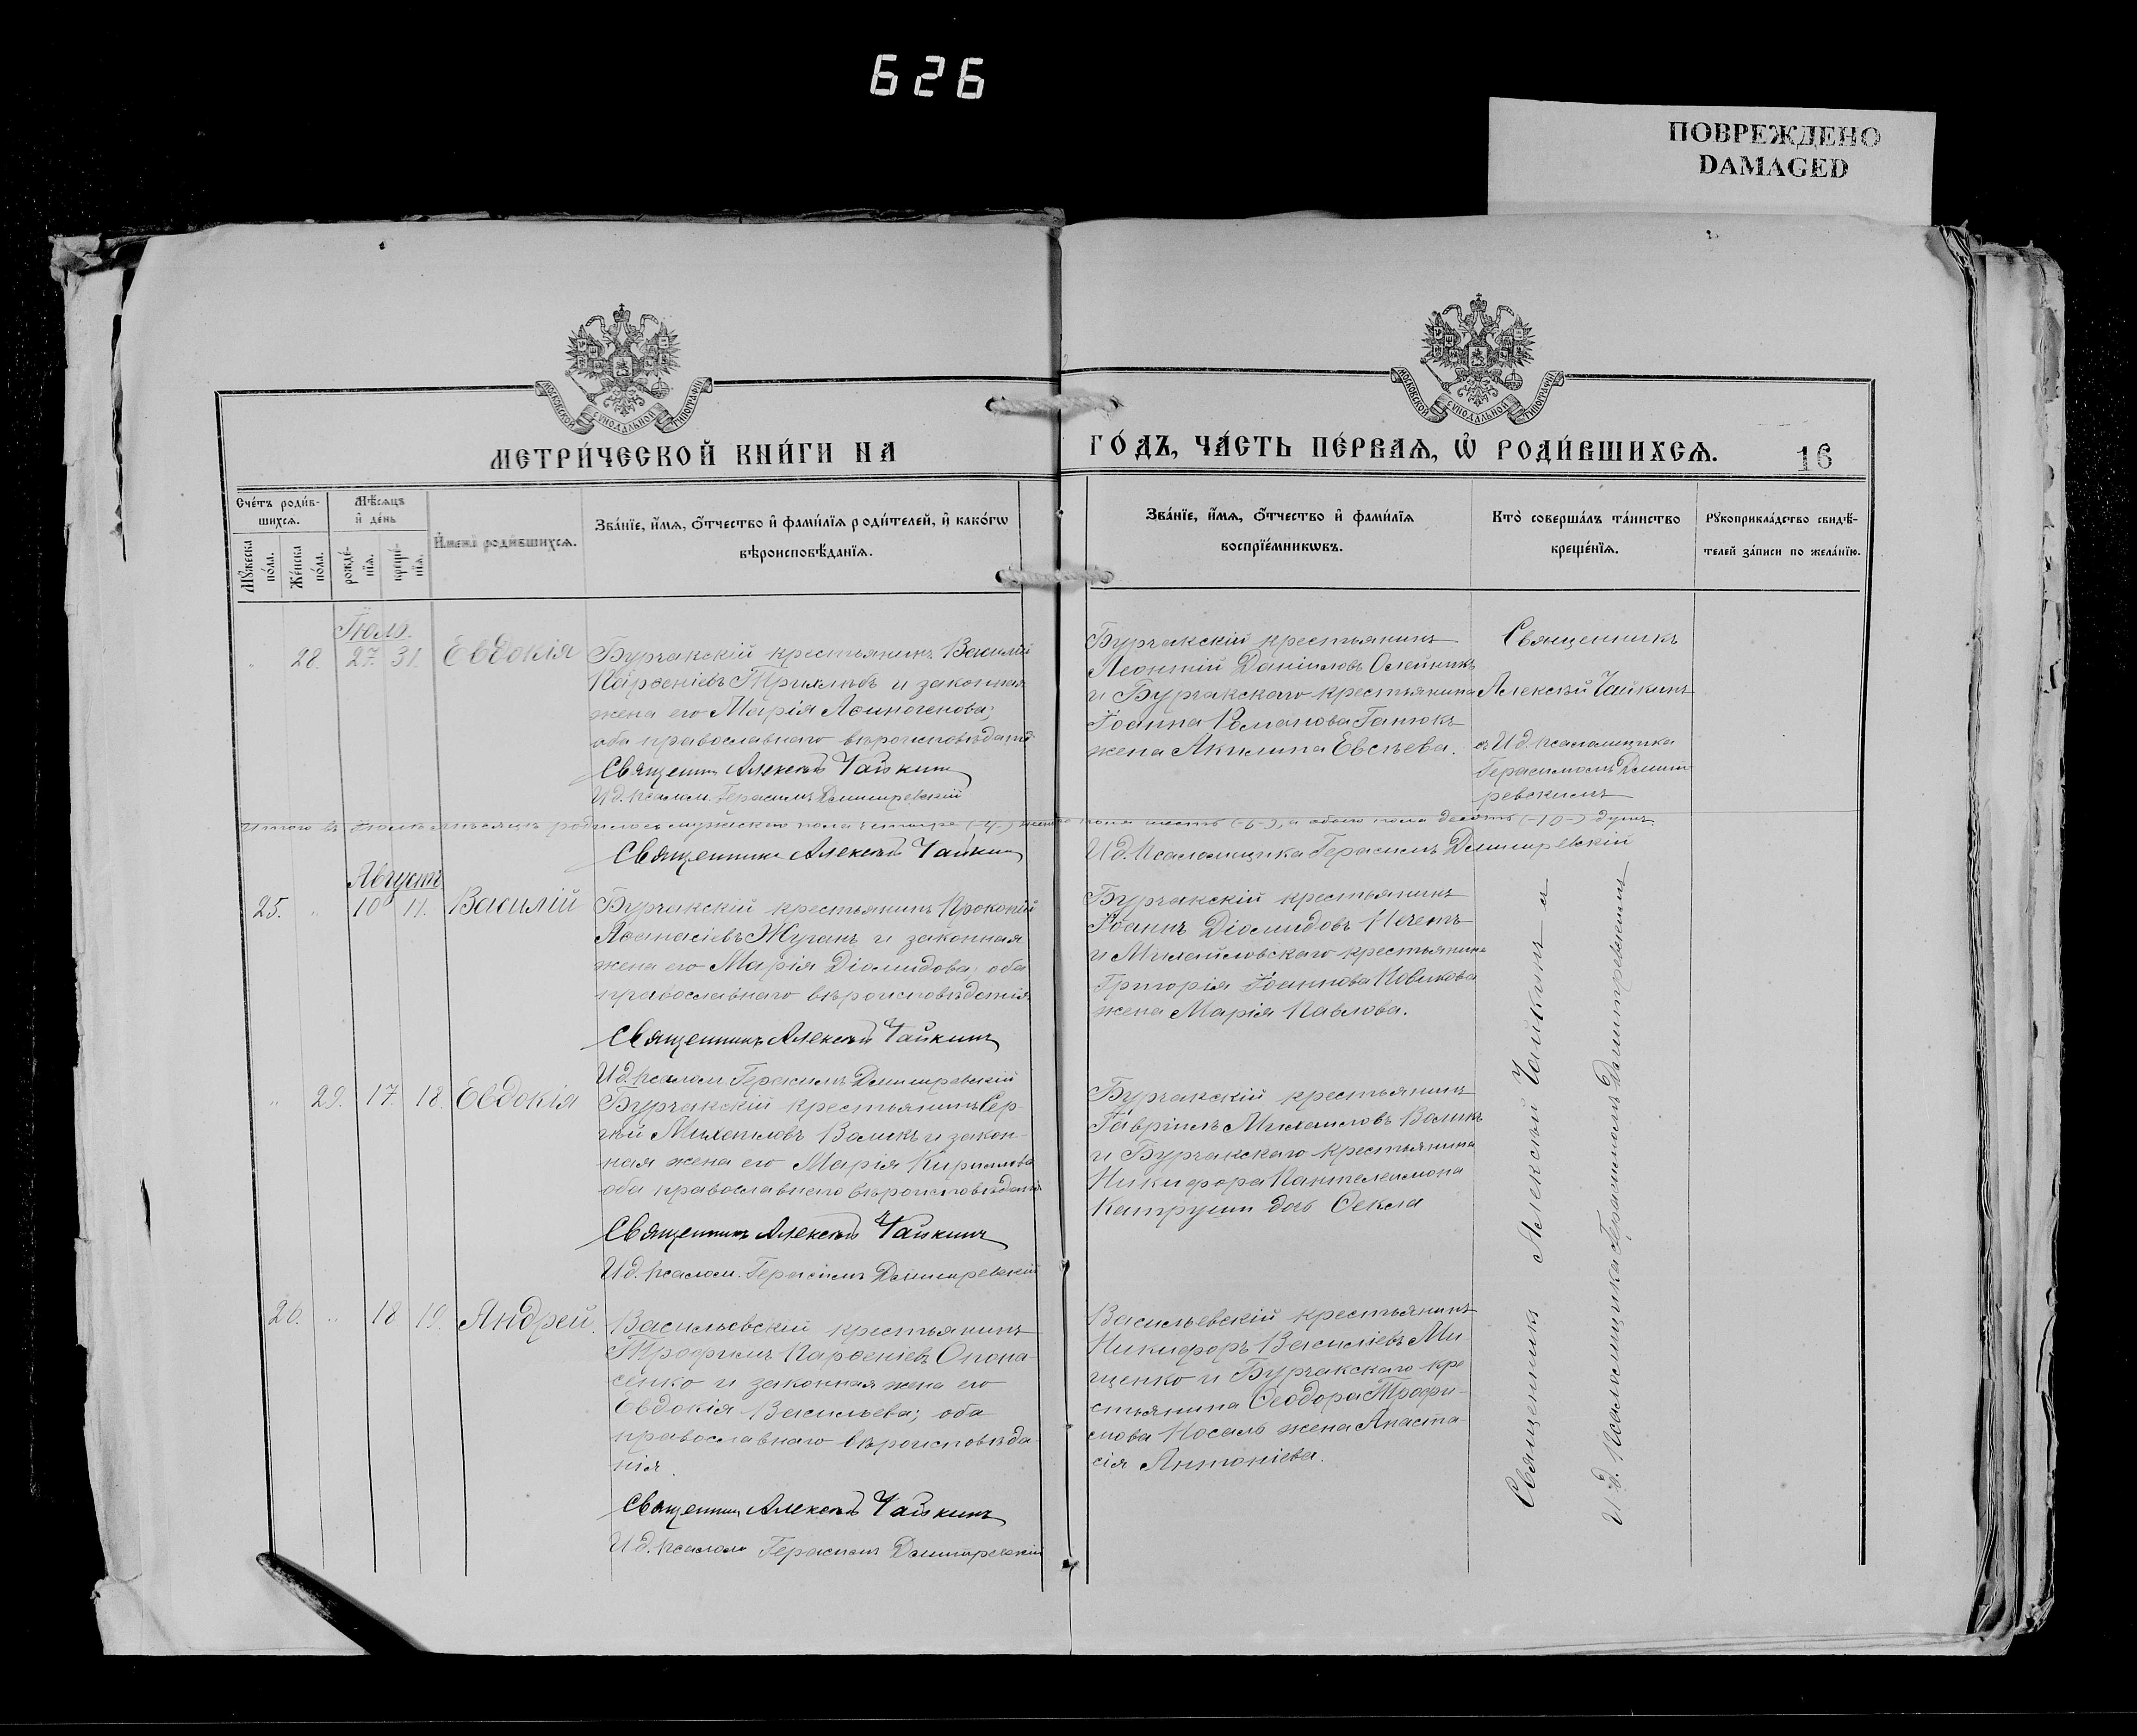 626
ПОВРЕЖДЕНО
DAMAGED
МОСКОВСКОЙ СѴНОДАЛЬНОЙ ТИПОГРАФІИ
МОСКОВСКОЙ СѴНОДАЛЬНОЙ ТИПОГРАФІИ
МЕТРИ́ЧЕСКОЙ КНИ́ГИ НА
ГО́ДЪ, ЧА́СТЬ ПЕ́РВАѦ, Ѡ҆ РОДИ́ВШИХСѦ.
16
Сче́тъ роди́в-
шихсѧ.
Мꙋ́жеска по́ла.
Же́нска по́ла.
Мѣ́сѧцъ
и҆ де́нь
рожде́-
нїѧ.
креще́-
нїѧ.
И҆мена̀ роди́вшихсѧ.
Зва́нїе, и҆́мѧ, ѻ҆́тчество и҆ фами́лїѧ роди́телей, и҆ како́гѡ
вѣроисповѣ́данїѧ.
Зва́нїе, и҆́мѧ, ѻ҆́тчество и҆ фами́лїѧ
воспрїе́мникѡвъ.
Кто̀ соверша́лъ та́инство
креще́нїѧ.
Рꙋкоприкла́дство свидѣ́-
телей за́писи по жела́нїю.
Іюль.
28. 27. 31. Евдокія
Бурчакскій крестьянинъ Василій
Парѳеніевъ и законная
жена его Марія Аѳиногенова;
оба православнаго вѣроисповѣданія
Священникъ Алексѣй Чайкинъ
И.д. псалом. Герасимъ Димитревскій
Бурчакскій крестьянинъ
Леонтій Даніиловъ Олейникъ
и Бурчакскаго крестьянина
Іоанна Романова Гатюкъ
жена Акилина Евсѣева.
Священникъ
Алексѣй Чайкинъ
съ И.д. псаломщика
Герасимомъ Димит-
ревскимъ
Итого въ Іюлѣ мѣсяцѣ родилось мужескаго пола четыре (-4-) женска пола шесть (-6-), а обоего пола десять (-10-) душъ.
Священникъ Алексѣй Чайкинъ
И.д. Псаломщика Герасимъ Димитревскій
Августъ
25. „ 10 11. Василій
Бурчакскій крестьянинъ Прокопій
Аѳанасіевъ Жуганъ и законная
жена его Марія Діомидова; оба
православнаго вѣроисповѣданія
Священникъ Алексѣй Чайкинъ
И.д. псалом. Герасимъ Димитревскій
Бурчакскій крестьянинъ
Іоаннъ Діомидовъ
и Михайловскаго крестьянина
Григорія Іоаннова Новикова
жена Марія Павлова.
„ 29. 17. 18. Евдокія
Бурчакскій крестьянинъ Сер-
гѣй Михаиловъ Воликъ и закон-
ная жена его Марія Кириллова
оба православнаго вѣроисповѣданія
Священникъ Алексѣй Чайкинъ
И.д. псалом. Герасимъ Димитревскій
Бурчакскій крестьянинъ
Гавріилъ Михаиловъ Воликъ
и Бурчакскаго крестьянина
Никифора Пантелеимона
Катруши дочь Ѳекла
26. „ 18 19. Андрей.
Васильевскій крестьянинъ
Трофимъ Парѳеніевъ Опона-
сенко и законная жена его
Евдокія Васильева; оба
православнаго вѣроисповѣда-
нія.
Священникъ Алексѣй Чайкинъ
И.д. псалом Герасимъ Димитревскій
Васильевскій крестьянинъ
Никифоръ Василіевъ Ми-
щенко и Бурчакскаго кре
стьянина Ѳеодора Трофи-
мова Косаль жена Анаста-
сія Антоніева.
Священникъ Алексѣй Чайкинъ и
И.д. Псаломщика Герасимомъ Димитревскимъ